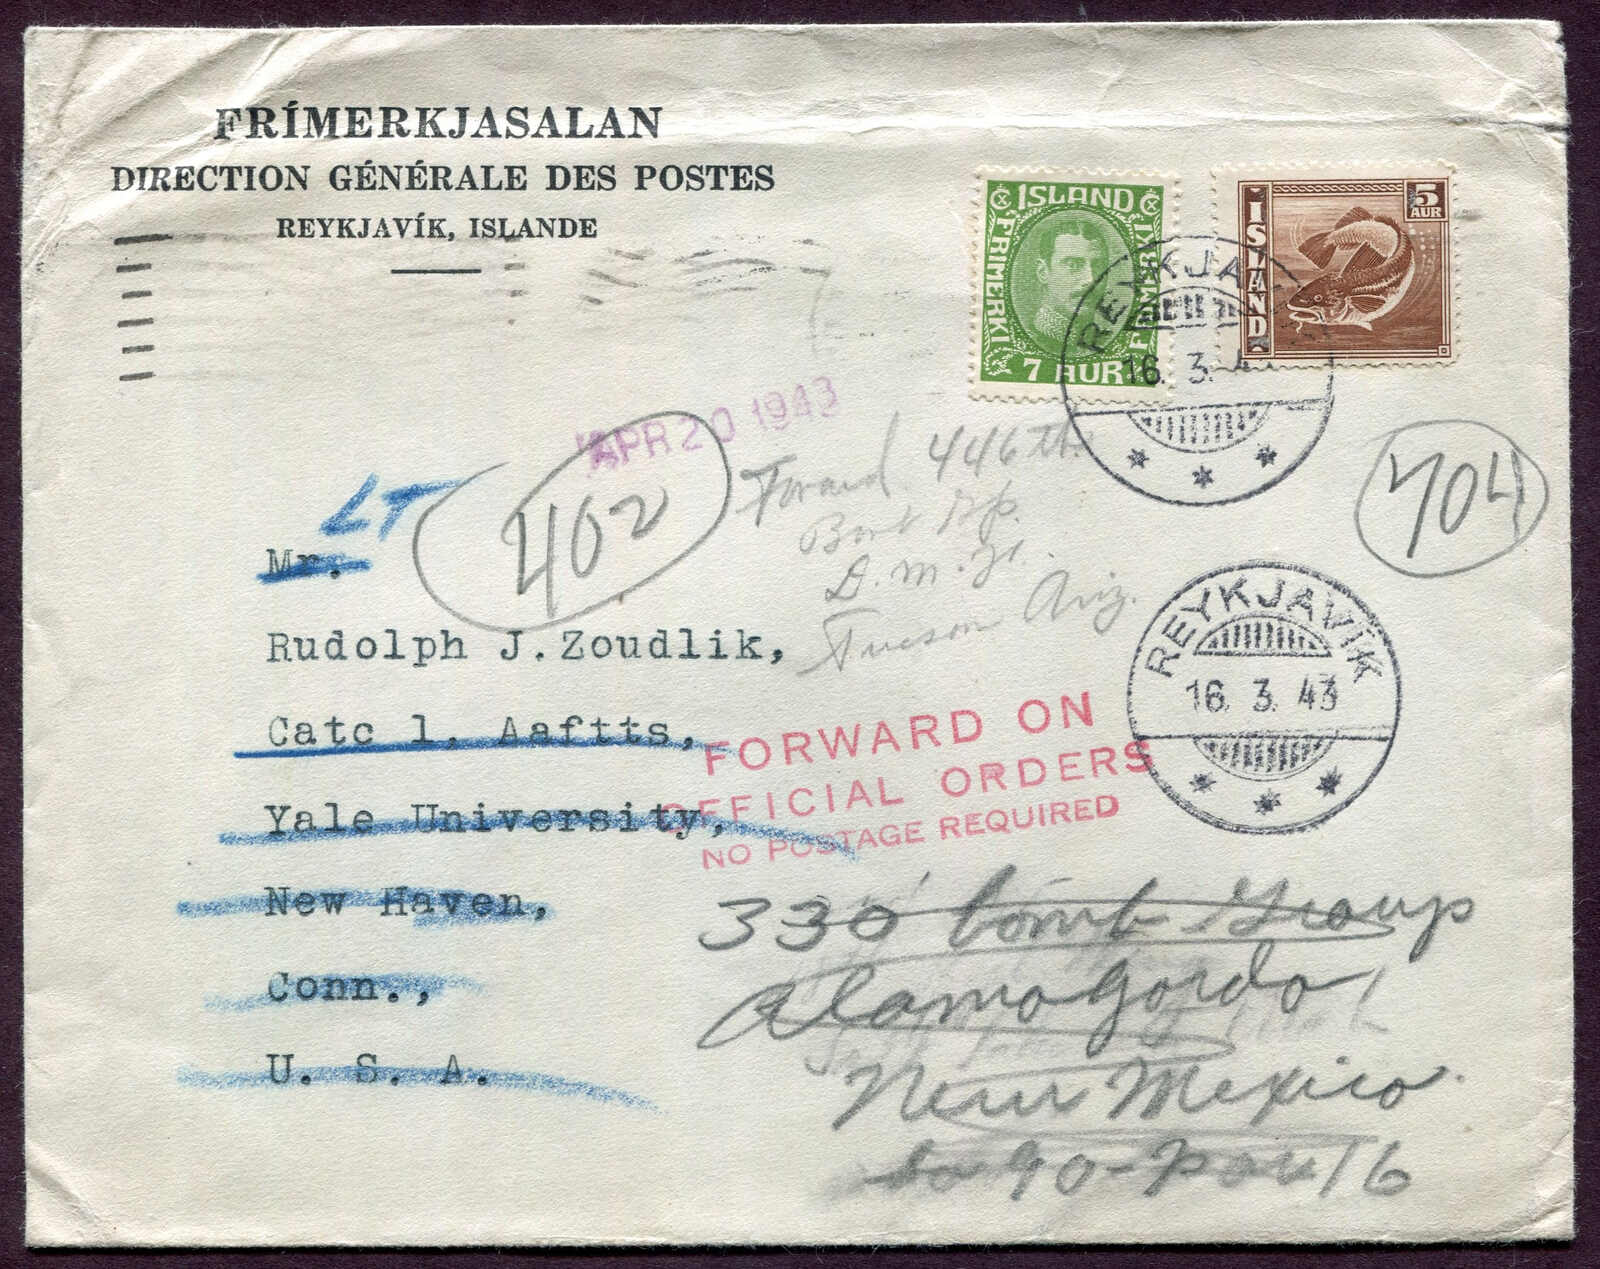 FRÍMERKJASALAN
DIRECTION GÉNÉRALE DES POSTES
REYKJAVÍK, ISLANDE
ISLAND
FRIMERKI
FRIMERKI
7 AUR
5
AUR
ISLAND
REYKJAVÍK
16. 3. 4
APR 20 1943
LT
402
Forward 446th
Gp.
D.M.Fl.
Tucson Ariz.
404
Mr.
Rudolph J. Zoudlik,
Catc 1, Aaftts,
Yale University,
New Haven,
Conn.,
U. S. A.
REYKJAVÍK
16. 3. 43
FORWARD ON
OFFICIAL ORDERS
NO POSTAGE REQUIRED
330 bomb Group
Alamogordo,
New Mexico.